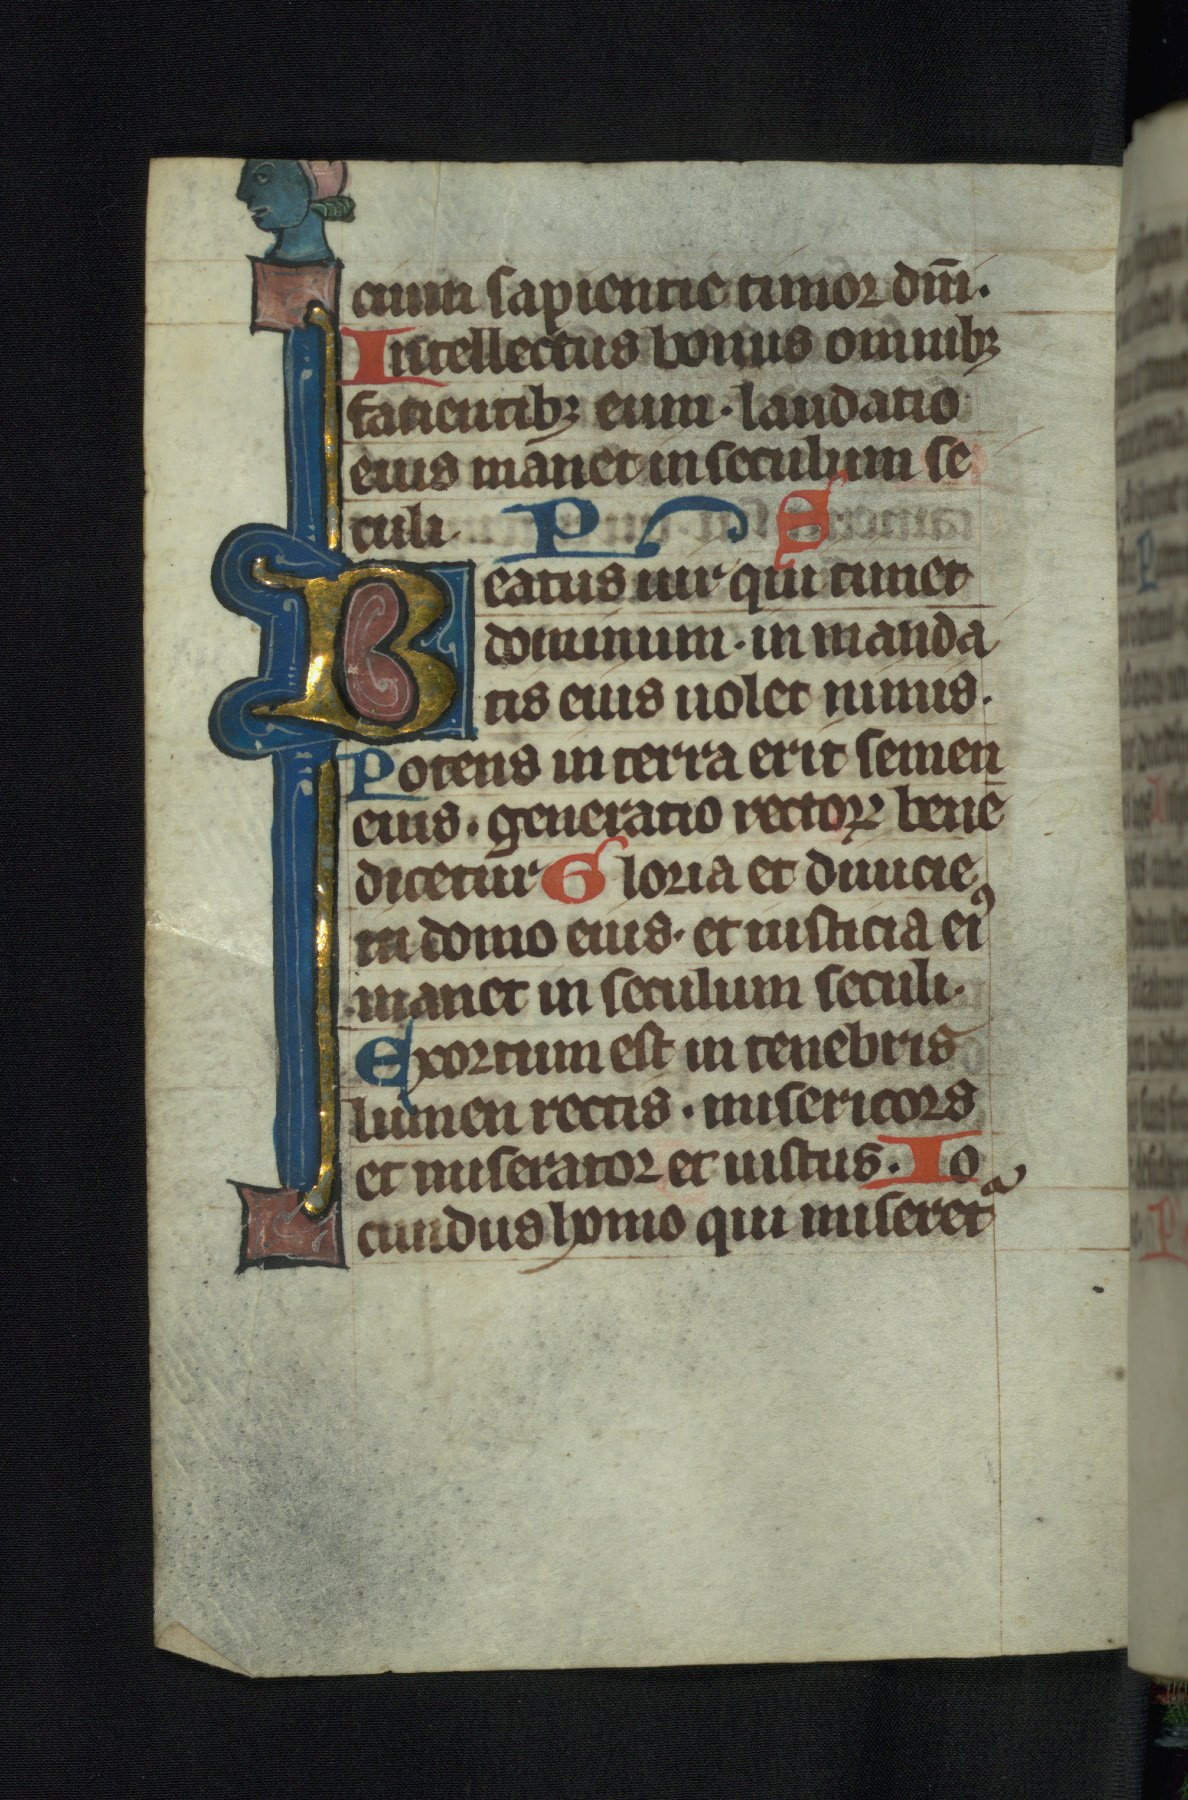 cium sapientie timor dñi.
Intellectus bonus omnibꝫ
facientibꝫ eum · laudatio
eius manet in seculum se
culi. PS
Beatus uir qui timet
dominum · in manda
tis eius uolet nimis.
Potens in terra erit semen
eius · generatio rectoꝝ bene
dicetur Gloria et diuicie
in domo eius · et iusticia eiꝰ
manet in seculum seculi.
Exortum est in tenebris
lumen rectis · misericors
et miserator et iustus. Io
cundus homo qui miseretᵃ